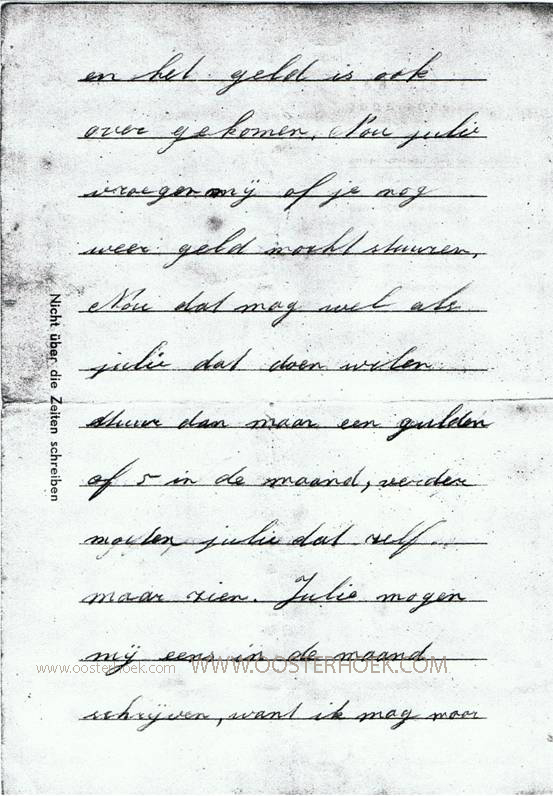 en het geld is ook
over gekomen, Nou julie
vroegen mij of je nog
weer geld mocht stuuren,
Nou dat mag wel als
julie dat doen wilen
stuur dan maar een gulden
of 5 in de maand, verder
moeten julie dat self
maar zien. Julie mogen
mij eens in de maand
schrijven, want ik mag maar
Nicht über die Zeilen schreiben
www.oosterhoek.com
WWW.OOSTERHOEK.COM